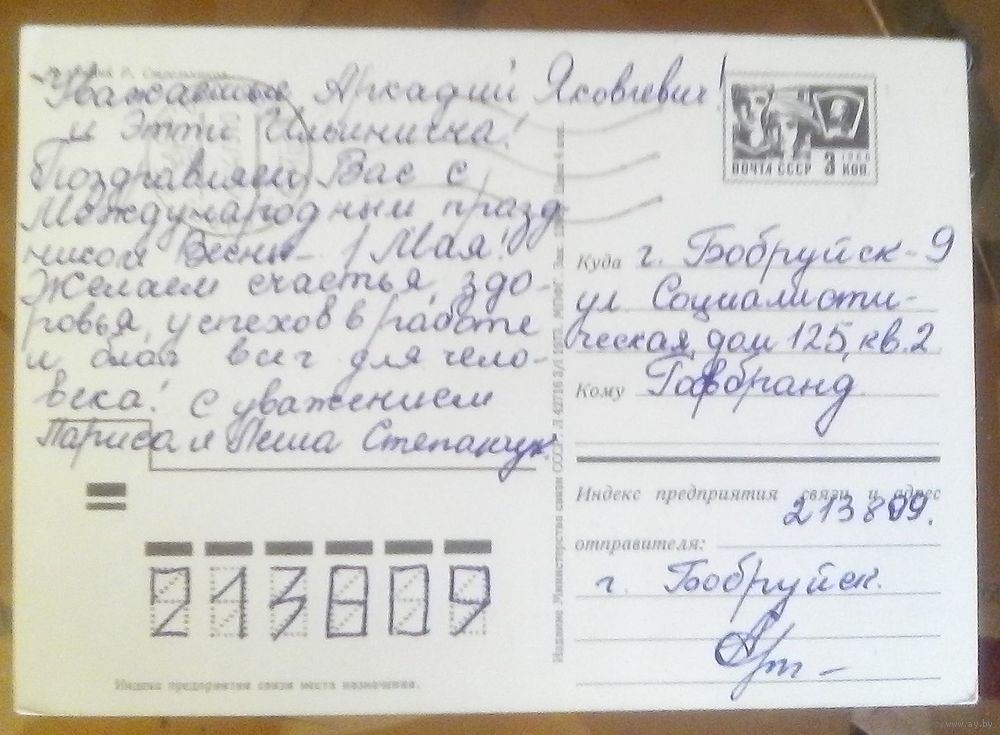 Уважаемые Аркадий Яковлевич!
и Этти Ильинична!
Поздравляем Вас с
Международным празд-
ником Весны - 1 Мая!
Желаем счастья, здо-
ровья, успехов в работе
и благ всег для чело-
века! С уважением
Лариса и Леша Степанчук
ПОЧТА СССР 3 КОП. 1966
Куда г. Бобруйск-9
ул Социалисти-
ческая, дом 125, кв. 2
Кому Гофбранд
Индекс предприятия связи и адрес
213809.
отправителя:
г. Бобруйск.
213809
Индекс предприятия связи места назначения.
Издание Министерства связи СССР.
www.ay.by